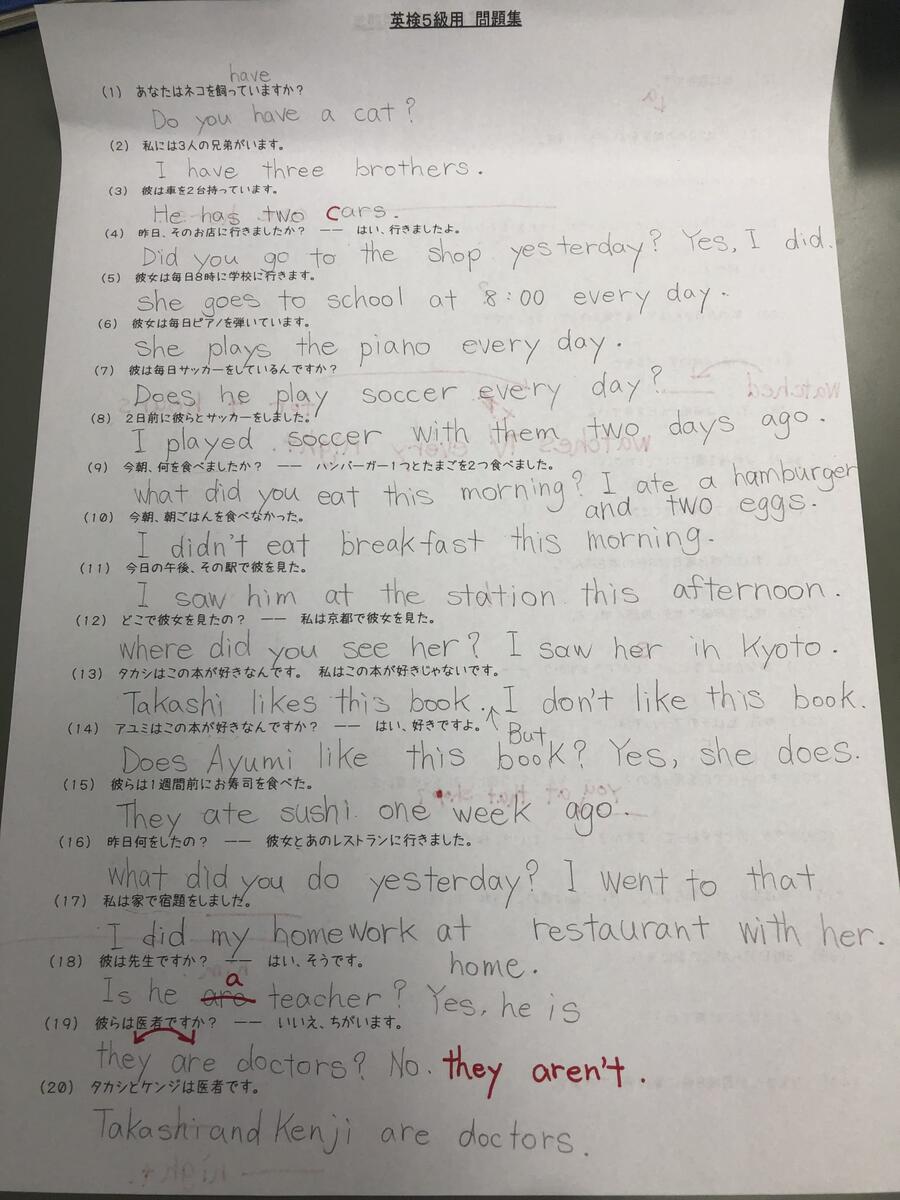 英検5級用 問題集
have
(1) あなたはネコを飼っていますか?
Do you have a cat?
(2) 私には3人の兄弟がいます。
I have three brothers.
(3) 彼は車を2台持っています。
He has two cars.
(4) 昨日、そのお店に行きましたか? ―― はい、行きましたよ。
Did you go to the shop yesterday? Yes, I did.
(5) 彼女は毎日8時に学校に行きます。
she goes to school at 8:00 every day.
(6) 彼女は毎日ピアノを弾いています。
she plays the piano every day.
(7) 彼は毎日サッカーをしているんですか?
Does he play soccer every day?
(8) 2日前に彼らとサッカーをしました。
I played soccer with them two days ago.
(9) 今朝、何を食べましたか? ―― ハンバーガー1つとたまごを2つ食べました。
what did you eat this morning? I ate a hamburger
and two eggs.
(10) 今朝、朝ごはんを食べなかった。
I didn't eat breakfast this morning.
(11) 今日の午後、その駅で彼を見た。
I saw him at the station this afternoon.
(12) どこで彼女を見たの? ―― 私は京都で彼女を見た。
where did you see her? I saw her in Kyoto.
(13) タカシはこの本が好きなんです。 私はこの本が好きじゃないです。
Takashi likes this book. I don't like this book.
(14) アユミはこの本が好きなんですか? ―― はい、好きですよ。
But
Does Ayumi like this book? Yes, she does.
(15) 彼らは1週間前にお寿司を食べた。
They ate sushi one week ago.
(16) 昨日何をしたの? ―― 彼女とあのレストランに行きました。
what did you do yesterday? I went to that
(17) 私は家で宿題をしました。
I did my homework at restaurant with her.
(18) 彼は先生ですか? ―― はい、そうです。
home.
a
Is he are teacher? Yes, he is
(19) 彼らは医者ですか? ―― いいえ、ちがいます。
they are doctors? No. they aren't.
(20) タカシとケンジは医者です。
Takashi and Kenji are doctors.